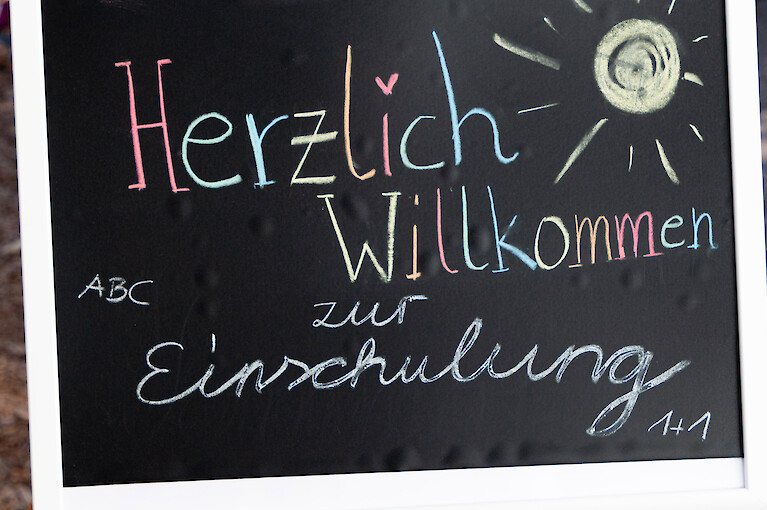 Herzlich
Willkommen
ABC
zur
Einschulung
1+1